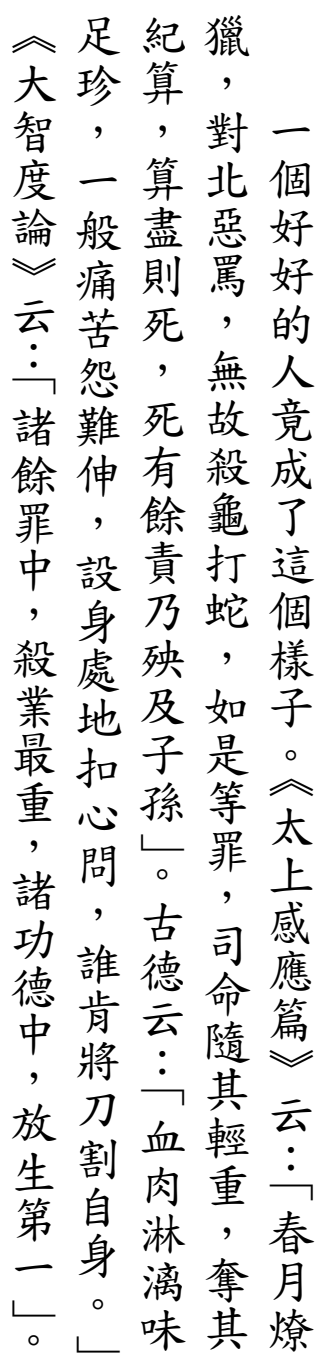 一個好好的人竟成了這個樣子。《太上感應篇》云：「春月燎
獵，對北惡罵，無故殺龜打蛇，如是等罪，司命隨其輕重，奪其
紀算，算盡則死，死有餘責乃殃及子孫」。古德云：「血肉淋漓味
足珍，一般痛苦怨難伸，設身處地扣心問，誰肯將刀割自身。」
《大智度論》云：「諸餘罪中，殺業最重，諸功德中，放生第一」。